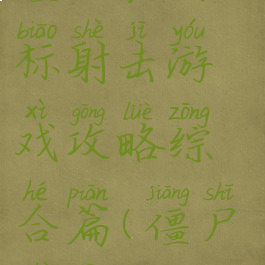 biāo shè jī yóu
标射击游
xì gōng lüè zōng
戏攻略综
hé piān jiāng shī
合篇(僵尸